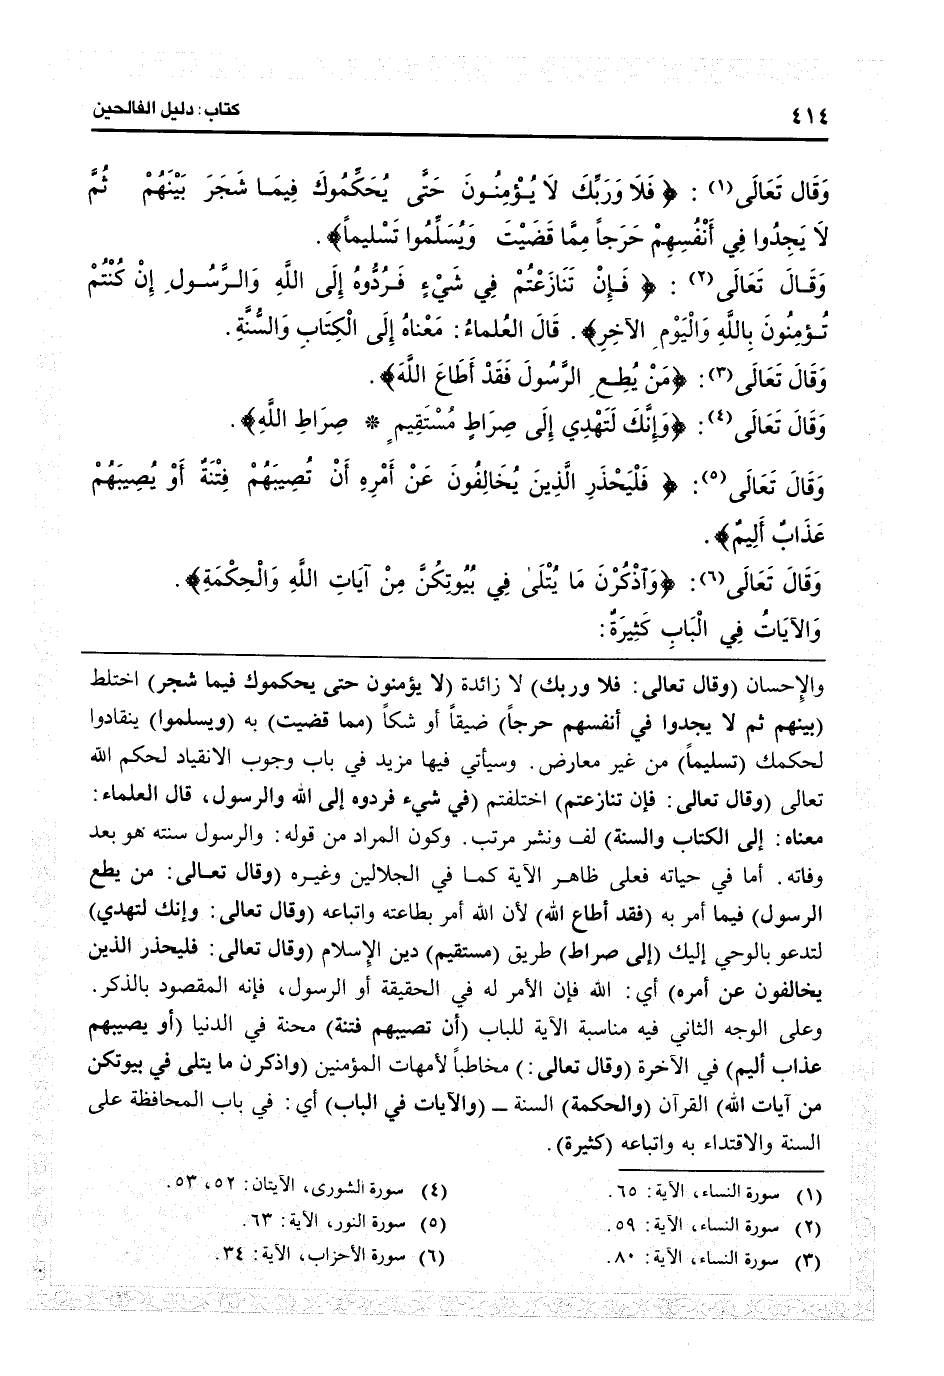 ٤١٤
كتاب: دليل الفالحين
وَقَال تَعَالَى(١) : ﴿ فَلَا وَرَبِّكَ لَا يُؤْمِنُونَ حَتَّى يُحَكِّمُوكَ فِيمَا شَجَرَ بَيْنَهُمْ ثُمَّ
لَا يَجِدُوا فِي أَنْفُسِهِمْ حَرَجاً مِمَّا قَضَيْتَ وَيُسَلِّمُوا تَسْلِيماً﴾ .
وَقَالَ تَعَالَى(٢) : ﴿ فَإِنْ تَنَازَعْتُمْ فِي شَيْءٍ فَرُدُّوهُ إِلَى اللَّهِ وَالرَّسُولِ إِنْ كُنْتُمْ
تُؤمِنُونَ بِاللَّهِ وَالْيَوْمِ الآخِرِ﴾. قَالَ العُلماءُ: مَعْناهُ إِلَى الْكِتَابِ وَالسُّنَّةِ.
وَقَالَ تَعَالَى(٣): ﴿مَنْ يُطِعِ الرَّسُولَ فَقَدْ أَطَاعَ اللَّهَ﴾.
وَقَالَ تَعَالَى(٤): ﴿وَإِنَّكَ لَتَهْدِي إِلَى صِرَاطٍ مُسْتَقِيمٍ * صِرَاطِ اللَّهِ﴾.
وَقَالَ تَعَالَى(٥): ﴿ فَلْيَحْذَرِ الَّذِينَ يُخَالِفُونَ عَنْ أَمْرِهِ أَنْ تُصِيبَهُمْ فِتْنَةٌ أَوْ يُصِيبَهُمْ
عَذَابٌ أَلِيمٌ﴾ .
وَقَالَ تَعَالَى(٦): ﴿وَاذْكُرْنَ مَا يُتْلَىٰ فِي بُيُوتِكُنَّ مِنْ آيَاتِ اللَّهِ وَالْحِكْمَةِ﴾.
وَالآيَاتُ فِي الْبَابِ كَثِيرَةٌ:
والإحسان (وقال تعالى: فلا وربك) لا زائدة (لا يؤمنون حتى يحكموك فيما شجر) اختلط
(بينهم ثم لا يجدوا في أنفسهم حرجاً) ضيقاً أو شكاً (مما قضيت) به (ويسلموا) ينقادوا
لحكمك (تسليماً) من غير معارض. وسيأتي فيها مزيد في باب وجوب الانقياد لحكم الله
تعالى (وقال تعالى: فإن تنازعتم) اختلفتم (في شيء فردوه إلى الله والرسول، قال العلماء:
معناه: إلى الكتاب والسنة) لف ونشر مرتب. وكون المراد من قوله: والرسول سنته هو بعد
وفاته. أما في حياته فعلى ظاهر الآية كما في الجلالين وغيره (وقال تعالى: من يطع
الرسول) فيما أمر به (فقد أطاع الله) لأن الله أمر بطاعته واتباعه (وقال تعالى: وإنك لتهدي)
لتدعو بالوحي إليك (إلى صراط) طريق (مستقيم) دين الإسلام (وقال تعالى: فليحذر الذين
يخالفون عن أمره) أي: الله فإن الأمر له في الحقيقة أو الرسول، فإنه المقصود بالذكر.
وعلى الوجه الثاني فيه مناسبة الآية للباب (أن تصيبهم فتنة) محنة في الدنيا (أو يصيبهم
عذاب أليم) في الآخرة (وقال تعالى:) مخاطباً لأمهات المؤمنين (واذكرن ما يتلى في بيوتكن
من آيات الله) القرآن (والحكمة) السنة ــ (والآيات في الباب) أي: في باب المحافظة على
السنة والاقتداء به واتباعه (كثيرة).
(١) سورة النساء، الآية: ٦٥.
(٢) سورة النساء، الآية: ٥٩.
(٣) سورة النساء، الآية: ٨٠.
(٤) سورة الشورى، الآيتان: ٥٢، ٥٣.
(٥) سورة النور، الآية: ٦٣.
(٦) سورة الأحزاب، الآية: ٣٤.